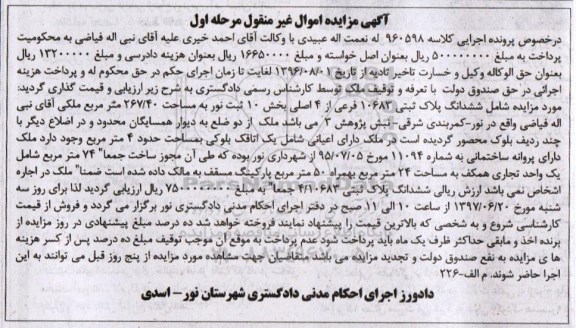 آگهی مزایده اموال غیر منقول مرحله اول
درخصوص پرونده اجرایی کلاسه ۹۶۰۵۹۸ له نعمت اله عبیدی با وکالت آقای احمد خیری علیه آقای نبی اله فیاضی به محکومیت
پرداخت به مبلغ ۵۰۰۰۰۰۰۰۰ ریال بعنوان اصل خواسته و مبلغ ۱۶۶۵۰۰۰۰ ریال بعنوان هزینه دادرسی و مبلغ ۱۳۲۰۰۰۰۰ ریال
بعنوان حق الوکاله وکیل و خسارت تاخیر تادیه از تاریخ ۱۳۹۶/۰۸/۰۱ لغایت تا زمان اجرای حکم در حق محکوم له و پرداخت هزینه
اجرائی در حق صندوق دولت با تعرفه و توقیف ملک توسط کارشناس رسمی دادگستری به شرح زیر ارزیابی و قیمت گذاری گردید:
مورد مزایده شامل ششدانگ پلاک ثبتی ۱۰۶۸۳ فرعی از ۴ اصلی بخش ۱۰ ثبت نور به مساحت ۲۶۷/۴۰ متر مربع ملکی آقای نبی
اله فیاضی واقع در نور-کمربندی شرقی-نبش پژوهش ۳ می باشد ملک از دو ضلع به دیوار همسایگان محدود و در اضلاع دیگر با
چند ردیف بلوک محصور گردیده است در ملک دارای اعیانی شامل یک اتاقک بلوکی بمساحت حدود ۴ متر مربع وجود دارد ملک
دارای پروانه ساختمانی به شماره ۱۱۰۹۴ مورخ ۹۵/۰۷/۰۵ از شهرداری نور بوده که طی آن مجوز ساخت جمعا" ۷۴ متر مربع شامل
یک واحد تجاری همکف به مساحت ۲۴ متر مربع بهمراه ۵۰ متر مربع پارکینگ مسقف به مالک داده شده است ضمنا" ملک در اجاره
اشخاص نمی باشد ارزش ریالی ششدانگ پلاک ثبتی ۴/۱۰۶۸۳ جمعا" به مبلغ ۷۵۰۰۰۰۰۰۰۰ ریال ارزیابی گردید لذا برای روز سه
شنبه مورخ ۱۳۹۷/۰۶/۲۰ از ساعت ۱۰ الی ۱۱ صبح در دفتر اجرای احکام مدنی دادگستری نور برگزار می گردد و فروش از قیمت
کارشناسی شروع و به شخصی که بالاترین قیمت را پیشنهاد نمایند فروخته خواهد شد ده درصد مبلغ پیشنهادی در روز مزایده از
برنده اخذ و مابقی حداکثر ظرف یک ماه باید پرداخت شود عدم پرداخت به موقع آن موجب توقیف مبلغ ده درصد پس از کسر هزینه
ها ی مزایده به نفع صندوق دولت و تجدید مزایده می باشد متقاضیان جهت مشاهده مورد مزایده از پنج روز قبل می توانند به این
اجرا حاضر شوند. م الف-۲۲۶
دادورز اجرای احکام مدنی دادگستری شهرستان نور - اسدی